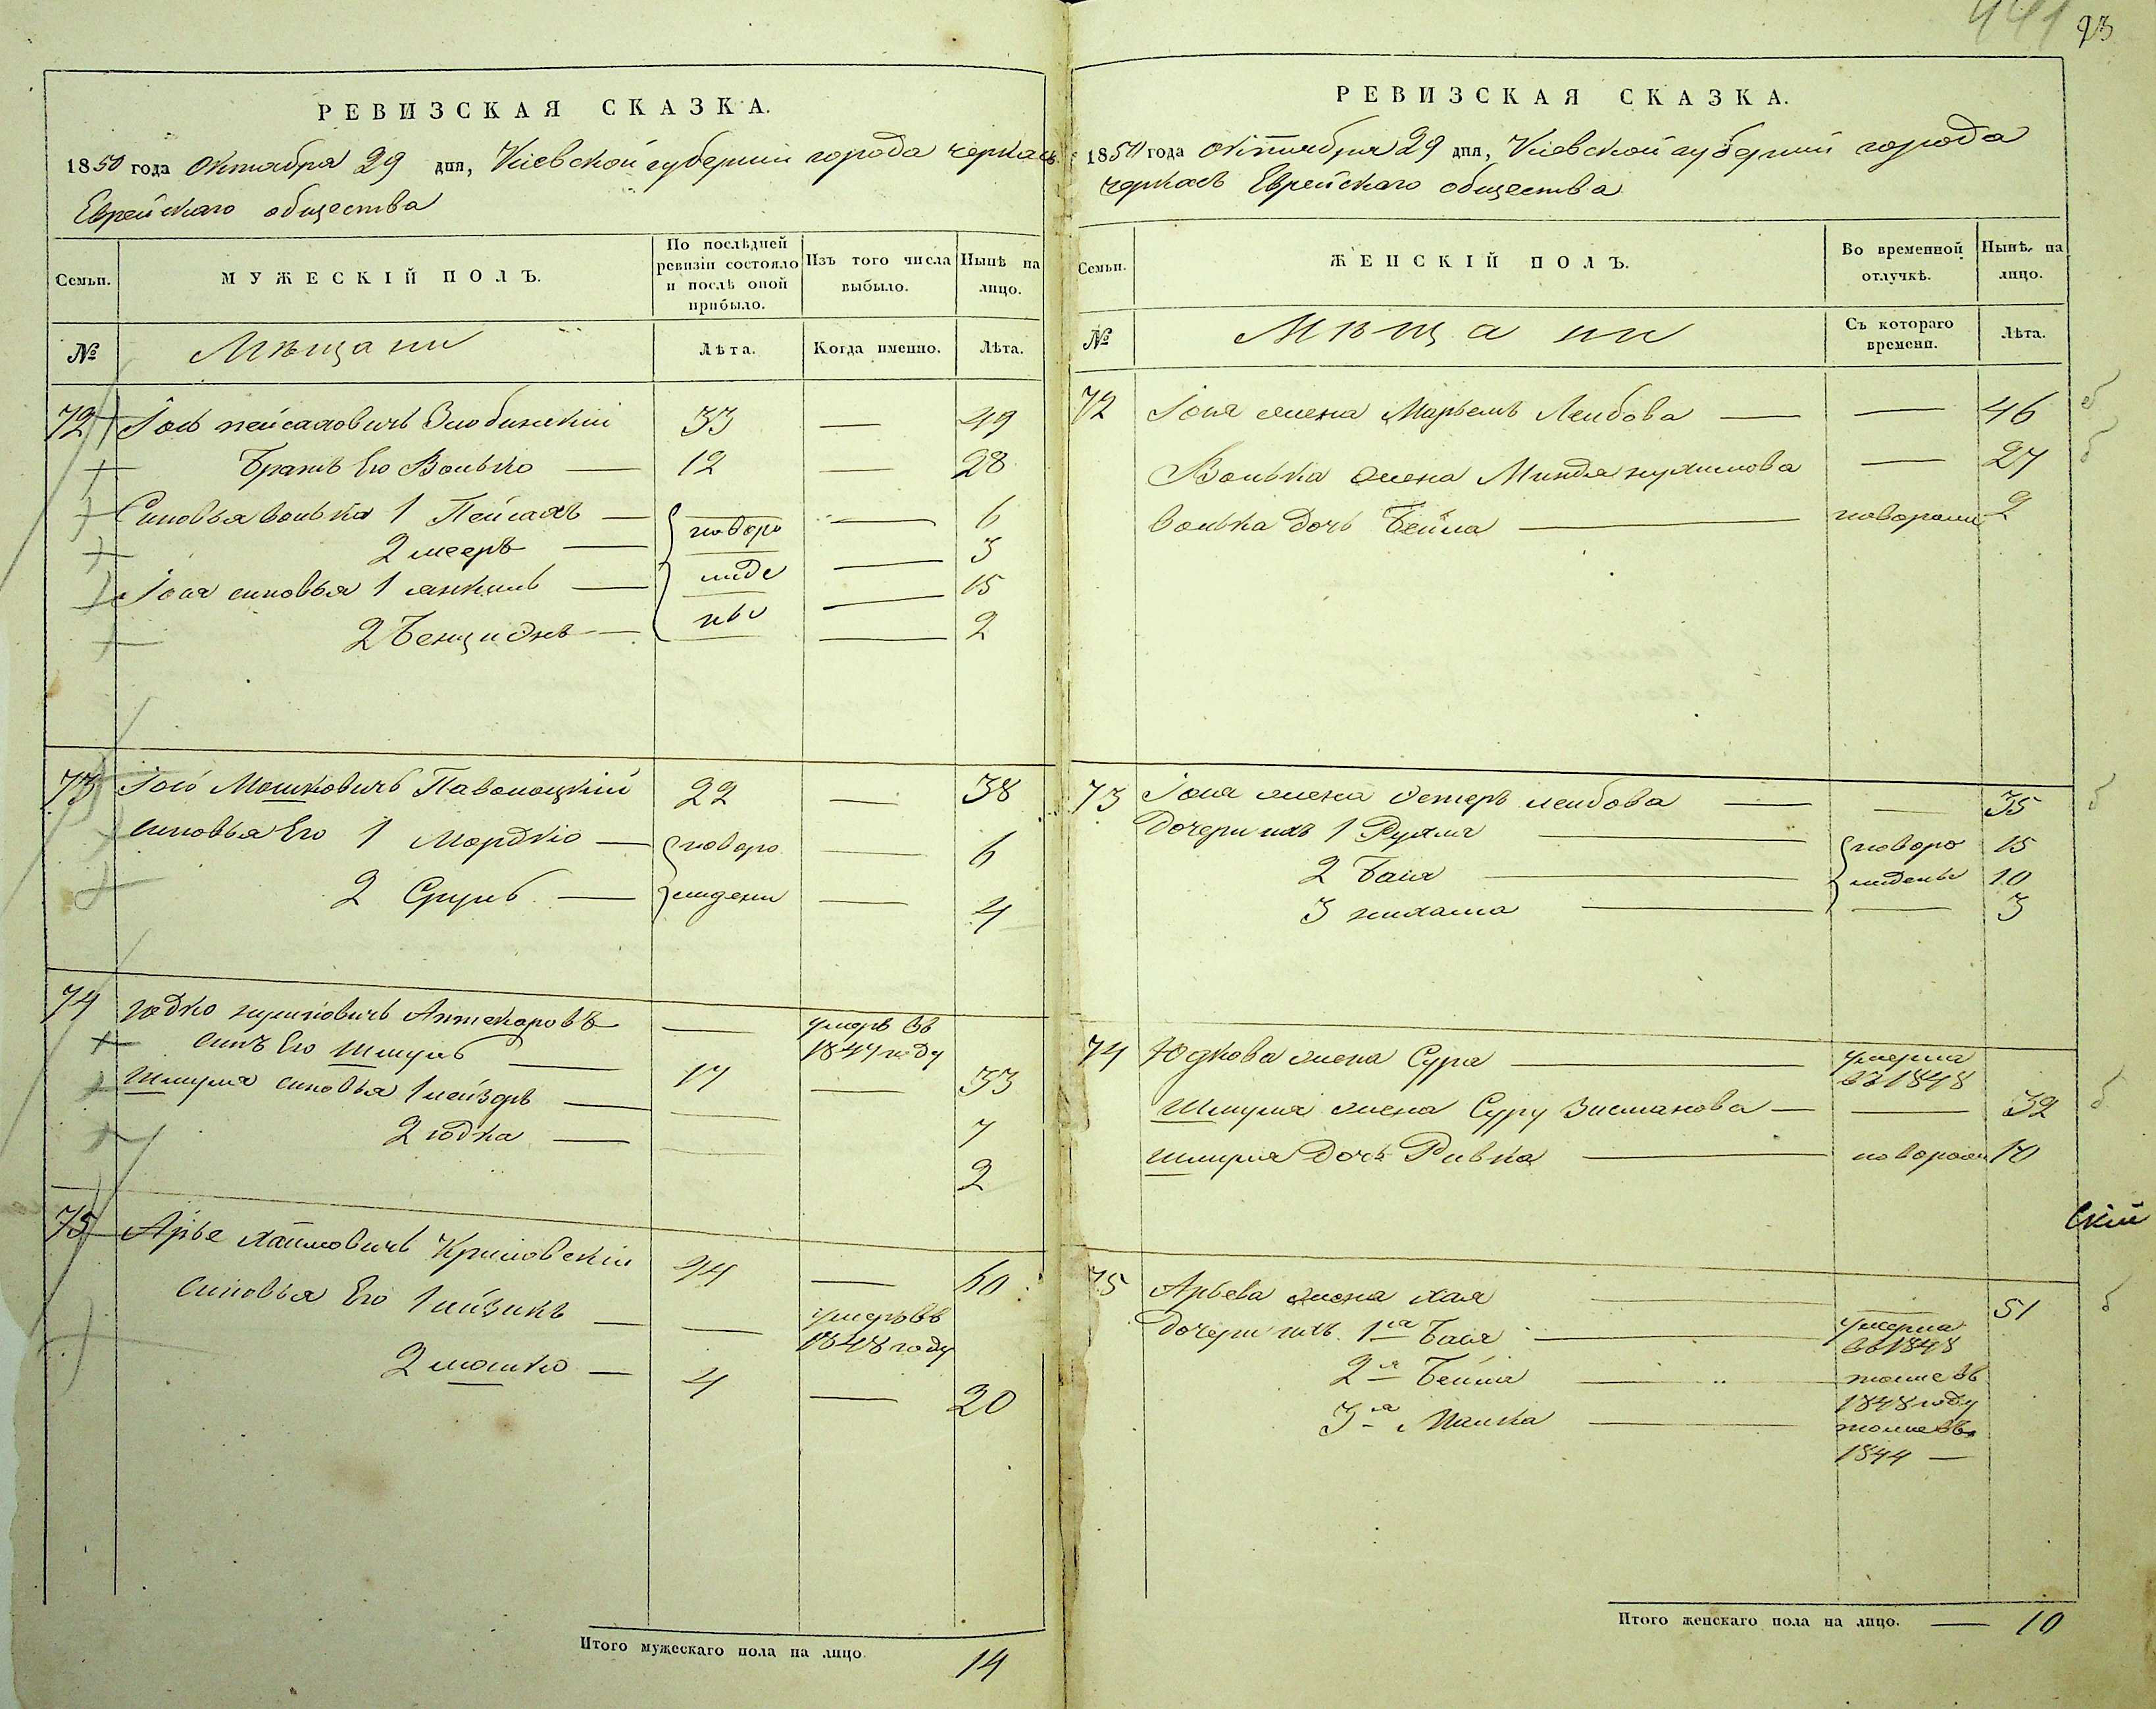 441 93
РЕВИЗСКАЯ СКАЗКА.
1850 года Октября 29 дня, Кіевской губерніи города Черкасъ
Еврейскаго общества
Семьи.
МУЖЕСКІЙ ПОЛЪ.
По послѣдней ревизіи состояло и послѣ оной прибыло.
Изъ того числа выбыло.
Нынѣ на лицо.
№ Мѣщани Лѣта. Когда именно. Лѣта.
72 Іось Пейсаховичъ Злобинскій 33 — 49
Братъ Его Волько — 12 — 28
Синовья волька 1 Пейсахъ — новоро — 6
2 мееръ — — 3
Іося синовья 1 янкель — жде — 15
2 Бенционъ — ны — 2
73 Іось Мошковичъ Паволоцкій 22 — 38
синовья Его 1 Мордко — новоро — 6
2 Сруль — ждени — 4
74 юдко Аптекаровъ — умеръ въ 1847 году
синъ Его Шмуль — 17 — 33
Шмуля синовья 1 лейзоръ — — 7
2 юдка — — 2
75 Арье хаимовичъ Криловскій 44 — 60
синовья Его 1 — — умеръ въ 1848 году
2 мошко — 4 — 20
Итого мужескаго пола на лицо. 14
РЕВИЗСКАЯ СКАЗКА.
1850 года октября 29 дня, Кіевской губерніи города
черкасъ Еврейскаго общества
Семьи.
ЖЕНСКІЙ ПОЛЪ.
Во временной отлучкѣ.
Нынѣ на лицо.
№ Мѣщани Съ котораго времени. Лѣта.
72 Іося жена Марьемъ Лейбова — — 46
Волька жена Миндя — 27
волька дочь Бейла — 2
73 Іося жена Естеръ лейбова — — 35
Дочери ихъ 1 Рухля — новоро 15
2 Бася — жденые 10
3 — — 3
74 Юдкова жена Сура — умерла въ 1848
Шмуля жена Суру Зисманова — — 32
шмуля дочь Ривка — 10
скій
75 Арьева жена хая — — 51
Дочери ихъ 1я Бася — умерла въ 1848
2я Бейля — тоже въ 1848 году
3я Малка — тоже въ 1844 —
Итого женскаго пола на лицо. — 10